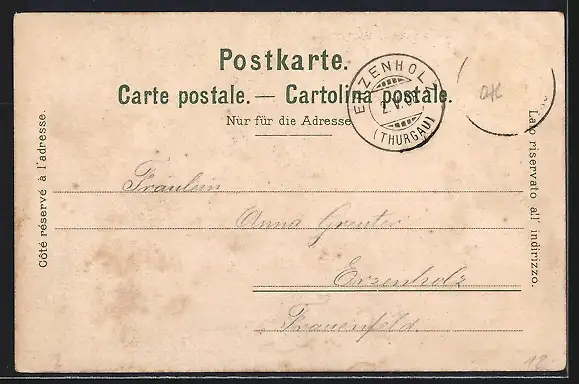 Postkarte.
Carte postale. — Cartolina postale.
Nur für die Adresse
Côté réservé à l'adresse.
Lato riservato all' indirizzo.
ERZENHOLZ
2.V.01
(THURGAU)
Fräulein
Anna Greuter
Erzenholz
Frauenfeld.
12.-